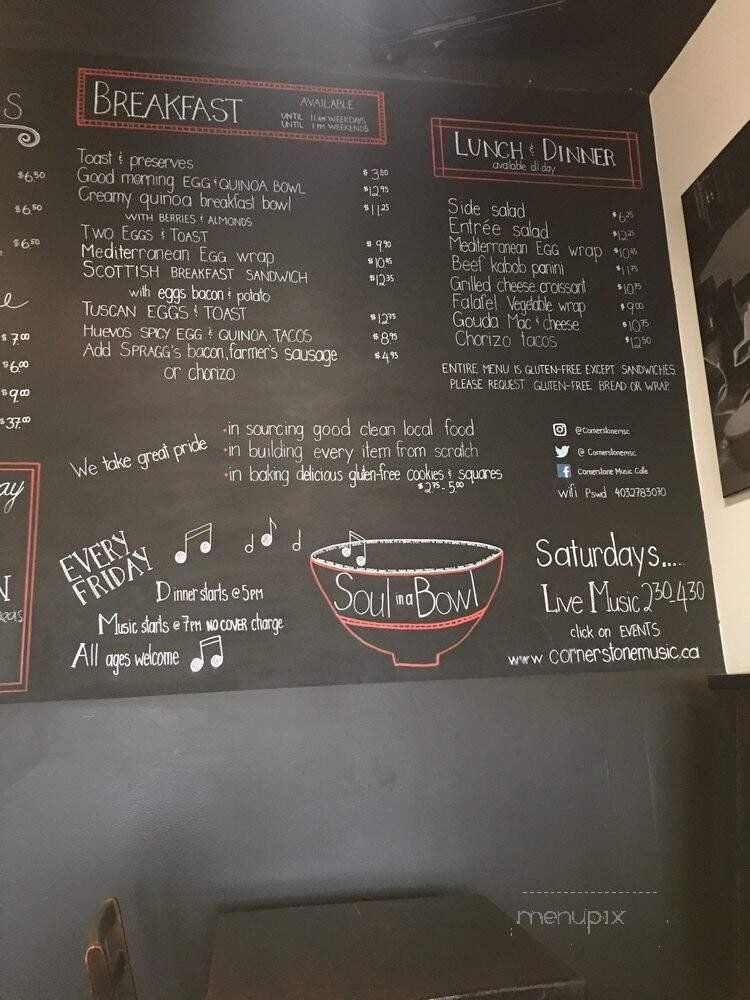 S
$6.50
$6.50
$6.50
e
$7.00
$6.00
$9.00
$37.00
ay
N
BREAKFAST
AVAILABLE
UNTIL 11AM WEEKDAYS
UNTIL 1PM WEEKENDS
Toast & preserves $3.80
Good morning EGG & QUINOA BOWL $12.95
Creamy quinoa breakfast bowl $11.25
WITH BERRIES & ALMONDS
TWO EGGS & TOAST $9.90
Mediterranean EGG wrap $10.45
SCOTTISH BREAKFAST SANDWICH $12.35
with eggs bacon & potato
TUSCAN EGGS & TOAST $12.75
HUEVOS SPICY EGG & QUINOA TACOS $8.95
Add SPRAGG'S bacon, farmer's sausage $4.95
or chorizo
LUNCH & DINNER
available all day
Side salad $6.25
Entrée salad $12.25
Mediterranean Egg wrap $10.45
Beef kabob panini $11.75
Grilled cheese croissant $10.75
Falafel Vegetable wrap $9.00
Gouda Mac & cheese $10.75
Chorizo tacos $12.50
ENTIRE MENU IS GLUTEN-FREE EXCEPT SANDWICHES.
PLEASE REQUEST GLUTEN-FREE BREAD OR WRAP.
We take great pride
•in sourcing good clean local food
•in building every item from scratch
•in baking delicious gluten-free cookies & squares
$2.75-5.00
@Cornerstonemsc
@Cornerstonemsc
Cornerstone Music Cafe
wifi Pswd 4032783070
EVERY
FRIDAY
Dinner starts @ 5PM
Music starts @ 7PM NO COVER charge
All ages welcome
Soul in a Bowl
Saturdays.....
LIVE MUSIC 2:30-4:30
click on EVENTS
www.cornerstonemusic.ca
menupix